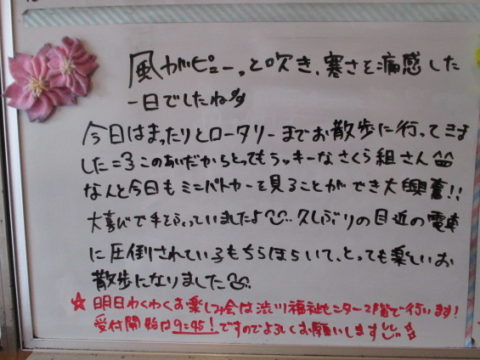 風がピューっと吹き、寒さを痛感した
一日でしたね
今日はまったりとロータリーまでお散歩に行ってきま
した=3このあいだからとってもラッキーなさくら組さん
なんと今日もミニパトカーを見ることができ大興奮!!
大喜びで手をふっていましたよ… 久しぶりの目近の電車
に圧倒されている子もちらほらいて、とっても楽しいお
散歩になりました
★ 明日わくわくお楽しみ会は渋川福祉センター2階で行います!
受付開始は9:45!ですのでよろしくお願いします